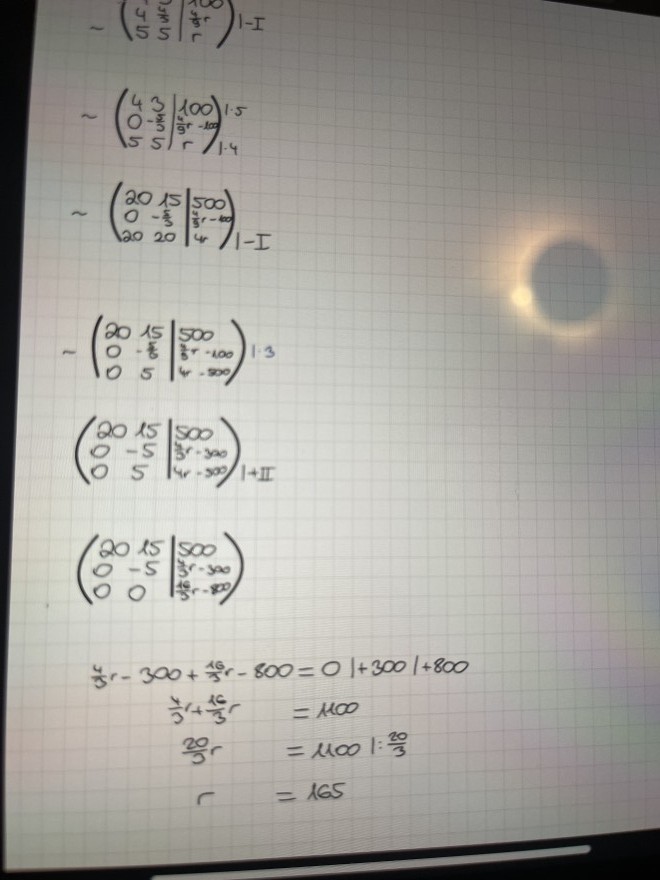 100
5 5 | r ) |-I
~ ( 4 3 | 100 ) |·5
0 | r -100
5 5 | r ) |·4
~ ( 20 15 | 500
0
20 20 | 4r ) |-I
~ ( 20 15 | 500
0 | r -100 ) |·3
0 5 | 4r -500
( 20 15 | 500
0 -5 | r - 300
0 5 | 4r - 500 ) |+II
( 20 15 | 500
0 -5 | r - 300
0 0 | r - 800 )
4/3 r - 300 + 16/3 r - 800 = 0 |+300 |+800
4/3 r + 16/3 r = 1100
20/3 r = 1100 |: 20/3
r = 165